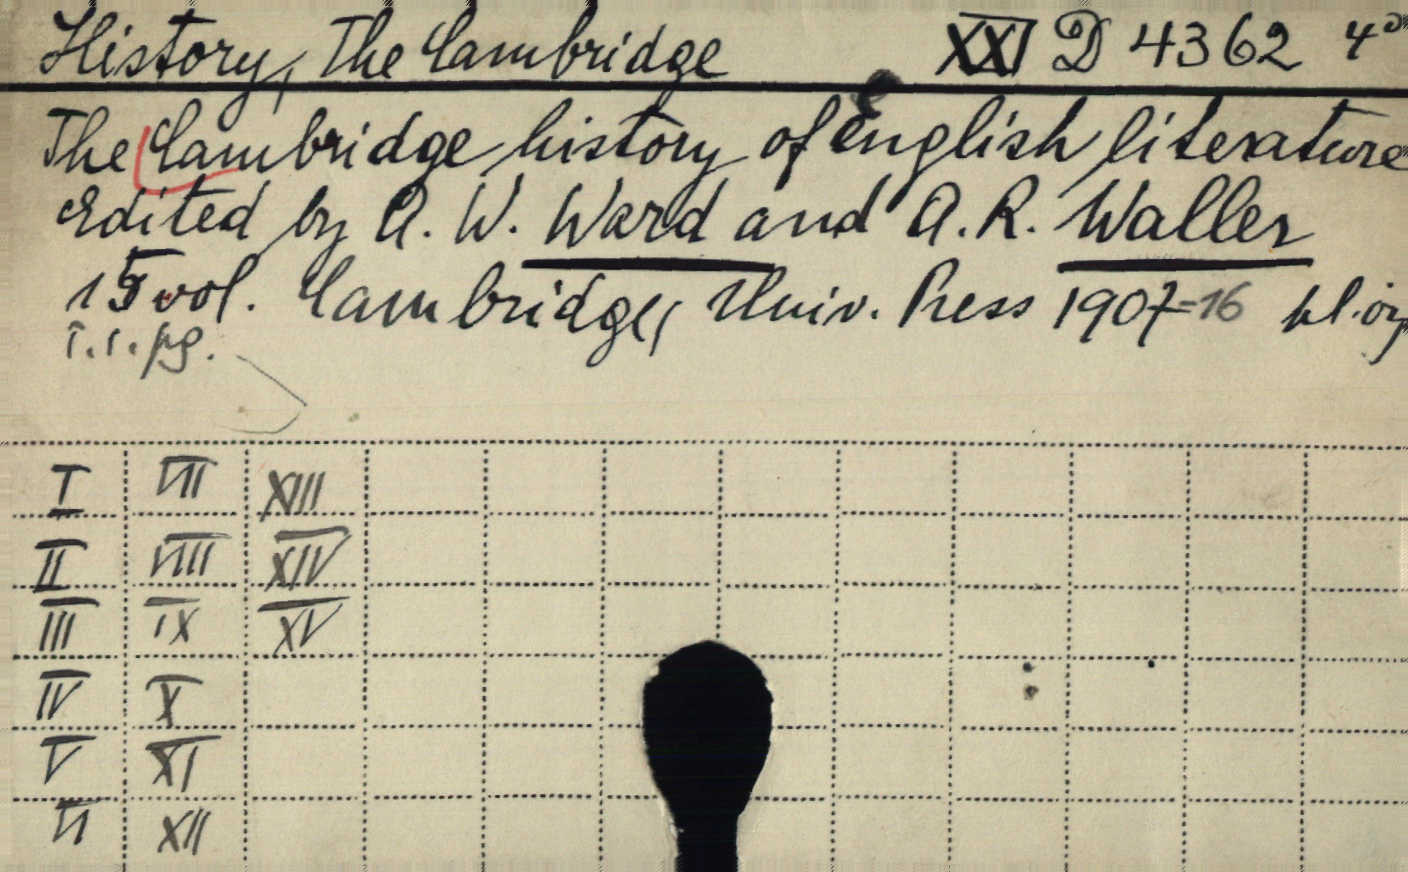 History, The Cambridge XXI D 4362 4°
The Cambridge history of English literature
edited by A. W. Ward and A. R. Waller
15 vol. Cambridge, Univ. Press 1907-16
I VII XIII
II VIII XIV
III IX XV
IV X
V XI
VI XII